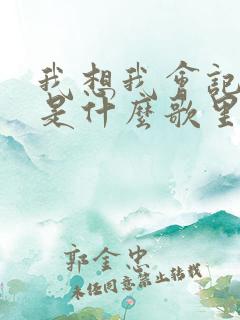 我想我会记
是什麼歌里
郭金忠
未经同意禁止转载